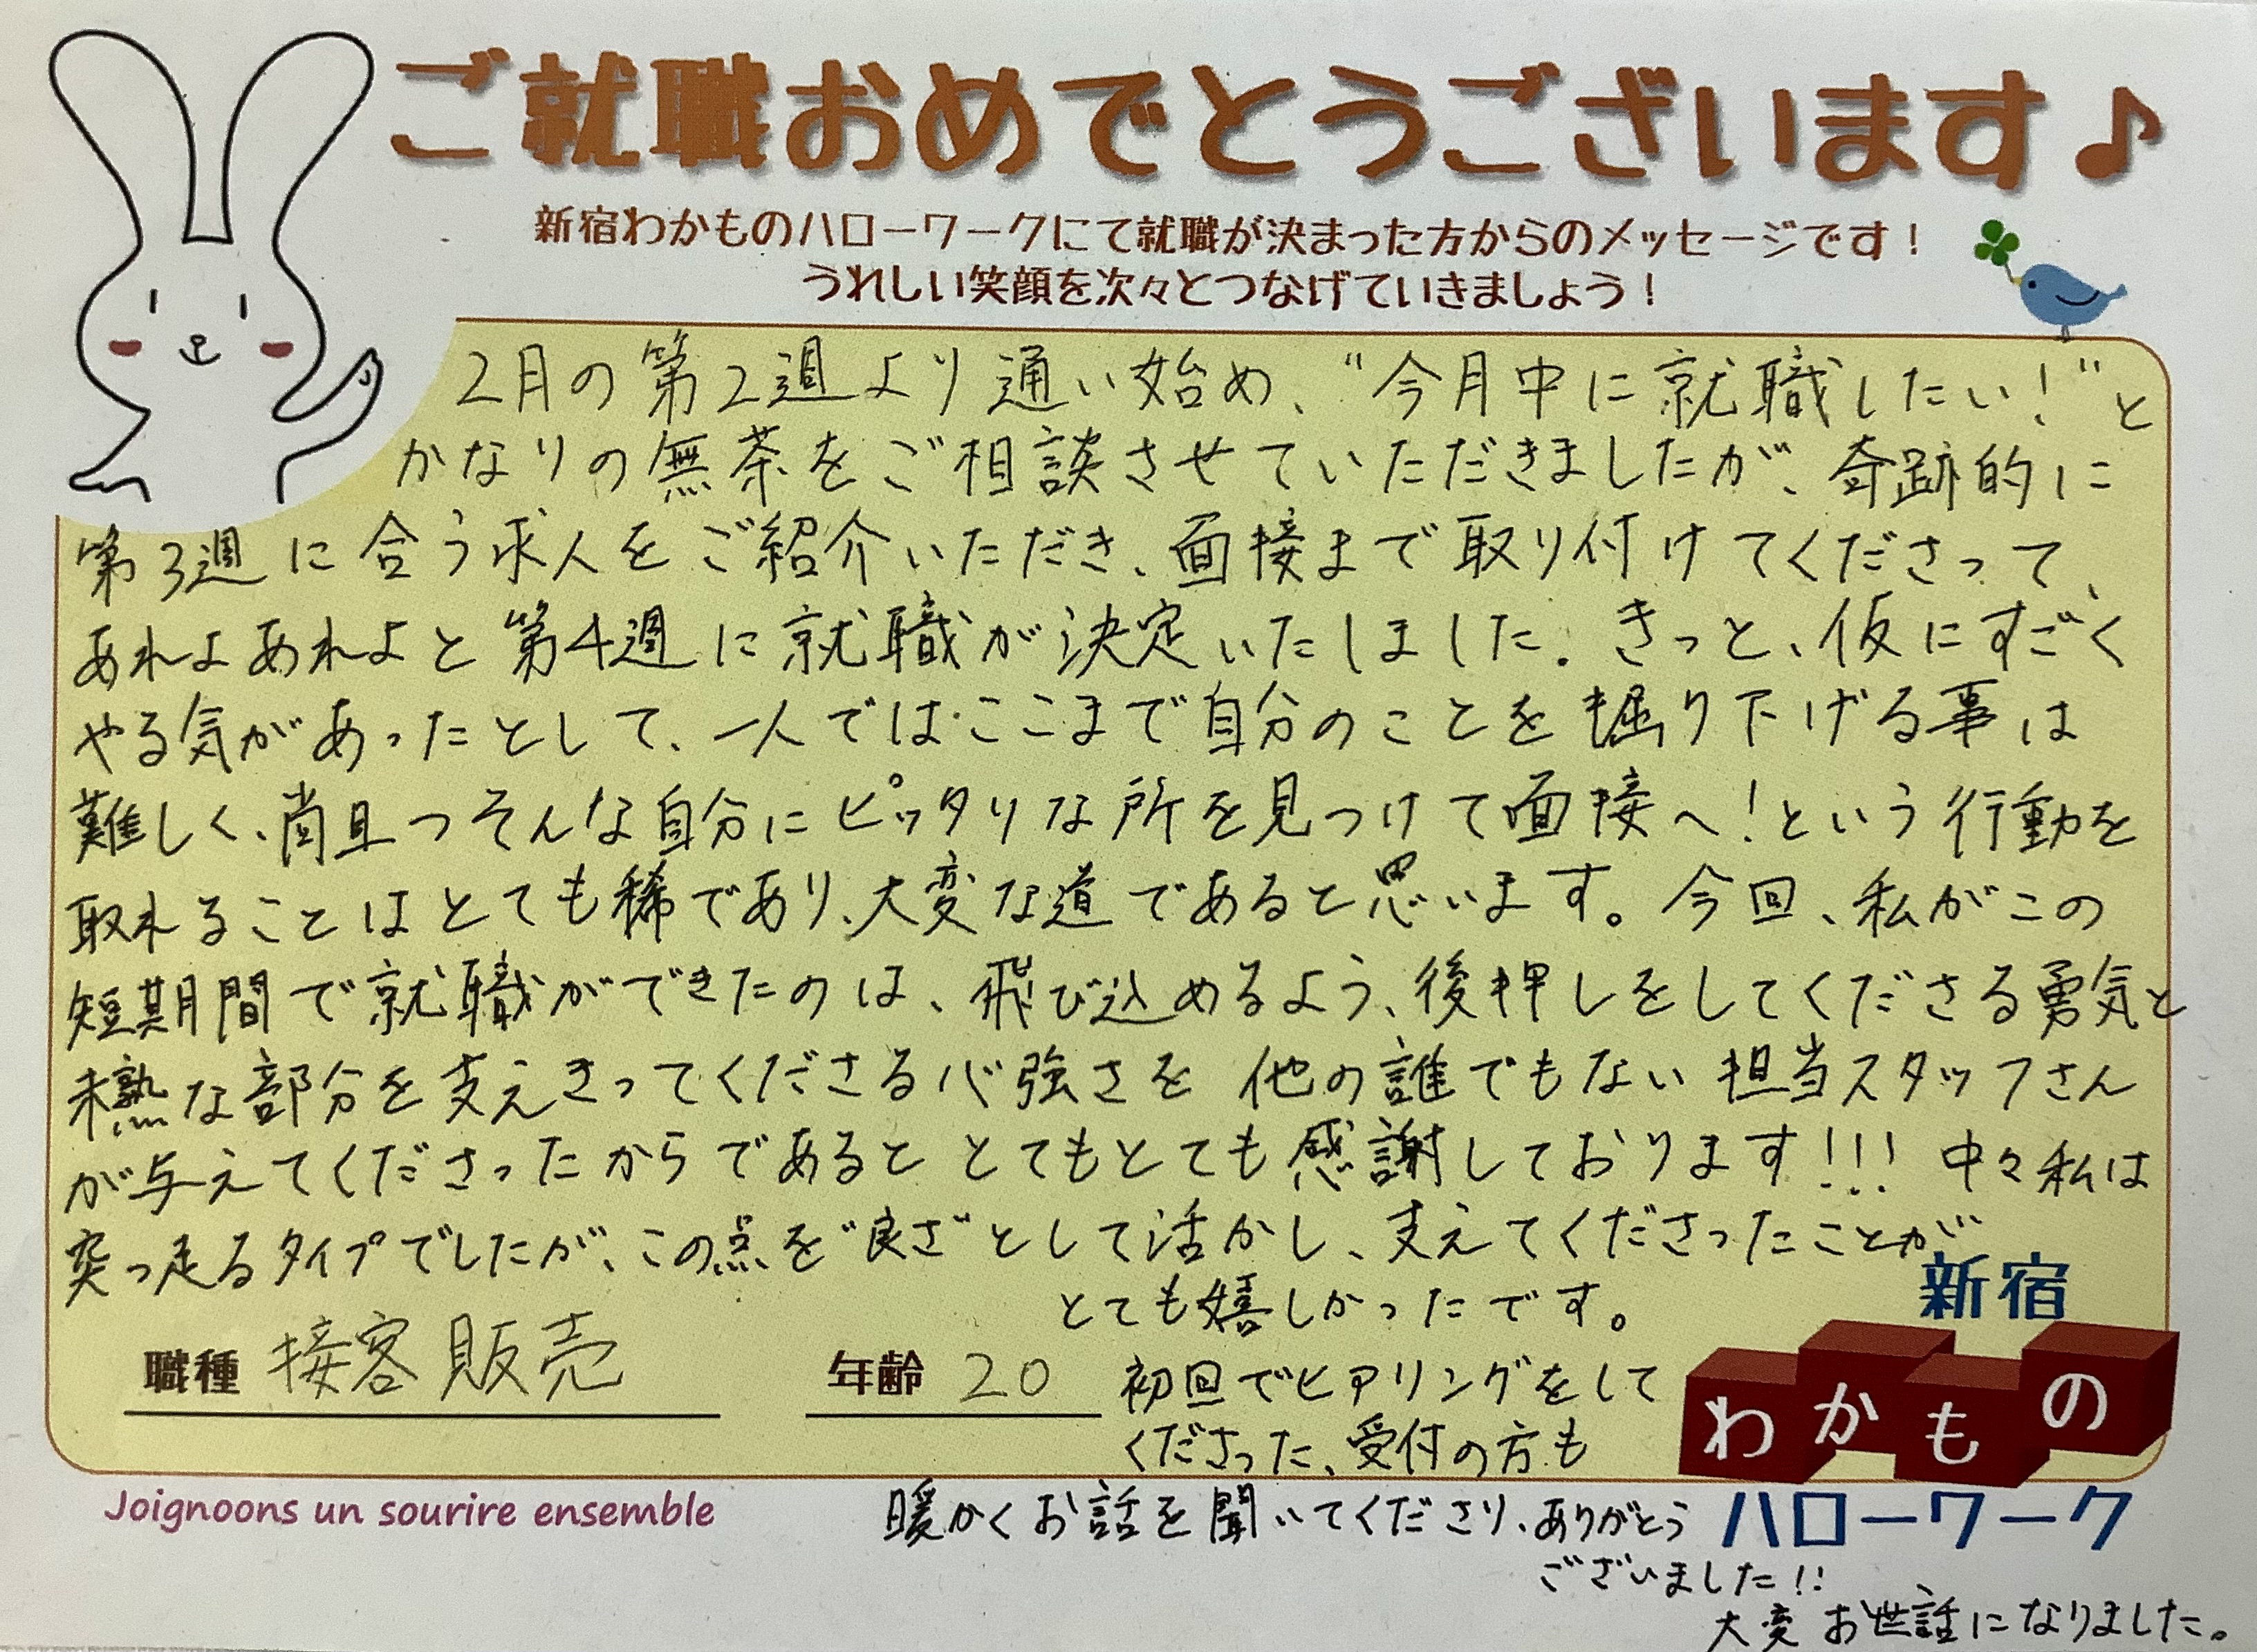 ご就職おめでとうございます♪
新宿わかものハローワークにて就職が決まった方からのメッセージです！
うれしい笑顔を次々とつなげていきましょう！
2月の第2週より通い始め、“今月中に就職したい！”と
かなりの無茶をご相談させていただきましたが、奇跡的に
第3週に合う求人をご紹介いただき、面接まで取り付けてくださって、
あれよあれよと第4週に就職が決定いたしました。きっと、仮にすごく
やる気があったとして、一人ではここまで自分のことを掘り下げる事は
難しく、尚且つそんな自分にピッタリな所を見つけて面接へ！という行動を
取れることはとても稀であり、大変な道であると思います。今回、私がこの
短期間で就職ができたのは、飛び込めるよう、後押しをしてくださる勇気と
未熟な部分を支えきってくださる心強さを 他の誰でもない担当スタッフさん
が与えてくださったからであると とてもとても感謝しております!!! 中々私は
突っ走るタイプでしたが、この点を“良さ”として活かし、支えてくださったことが
とても嬉しかったです。
職種 接客販売
年齢 20
初回でヒアリングをして
くださった、受付の方も
暖かくお話を聞いてくださり、ありがとう
ございました!!
大変お世話になりました。
新宿
わかもの
ハローワーク
Joignoons un sourire ensemble